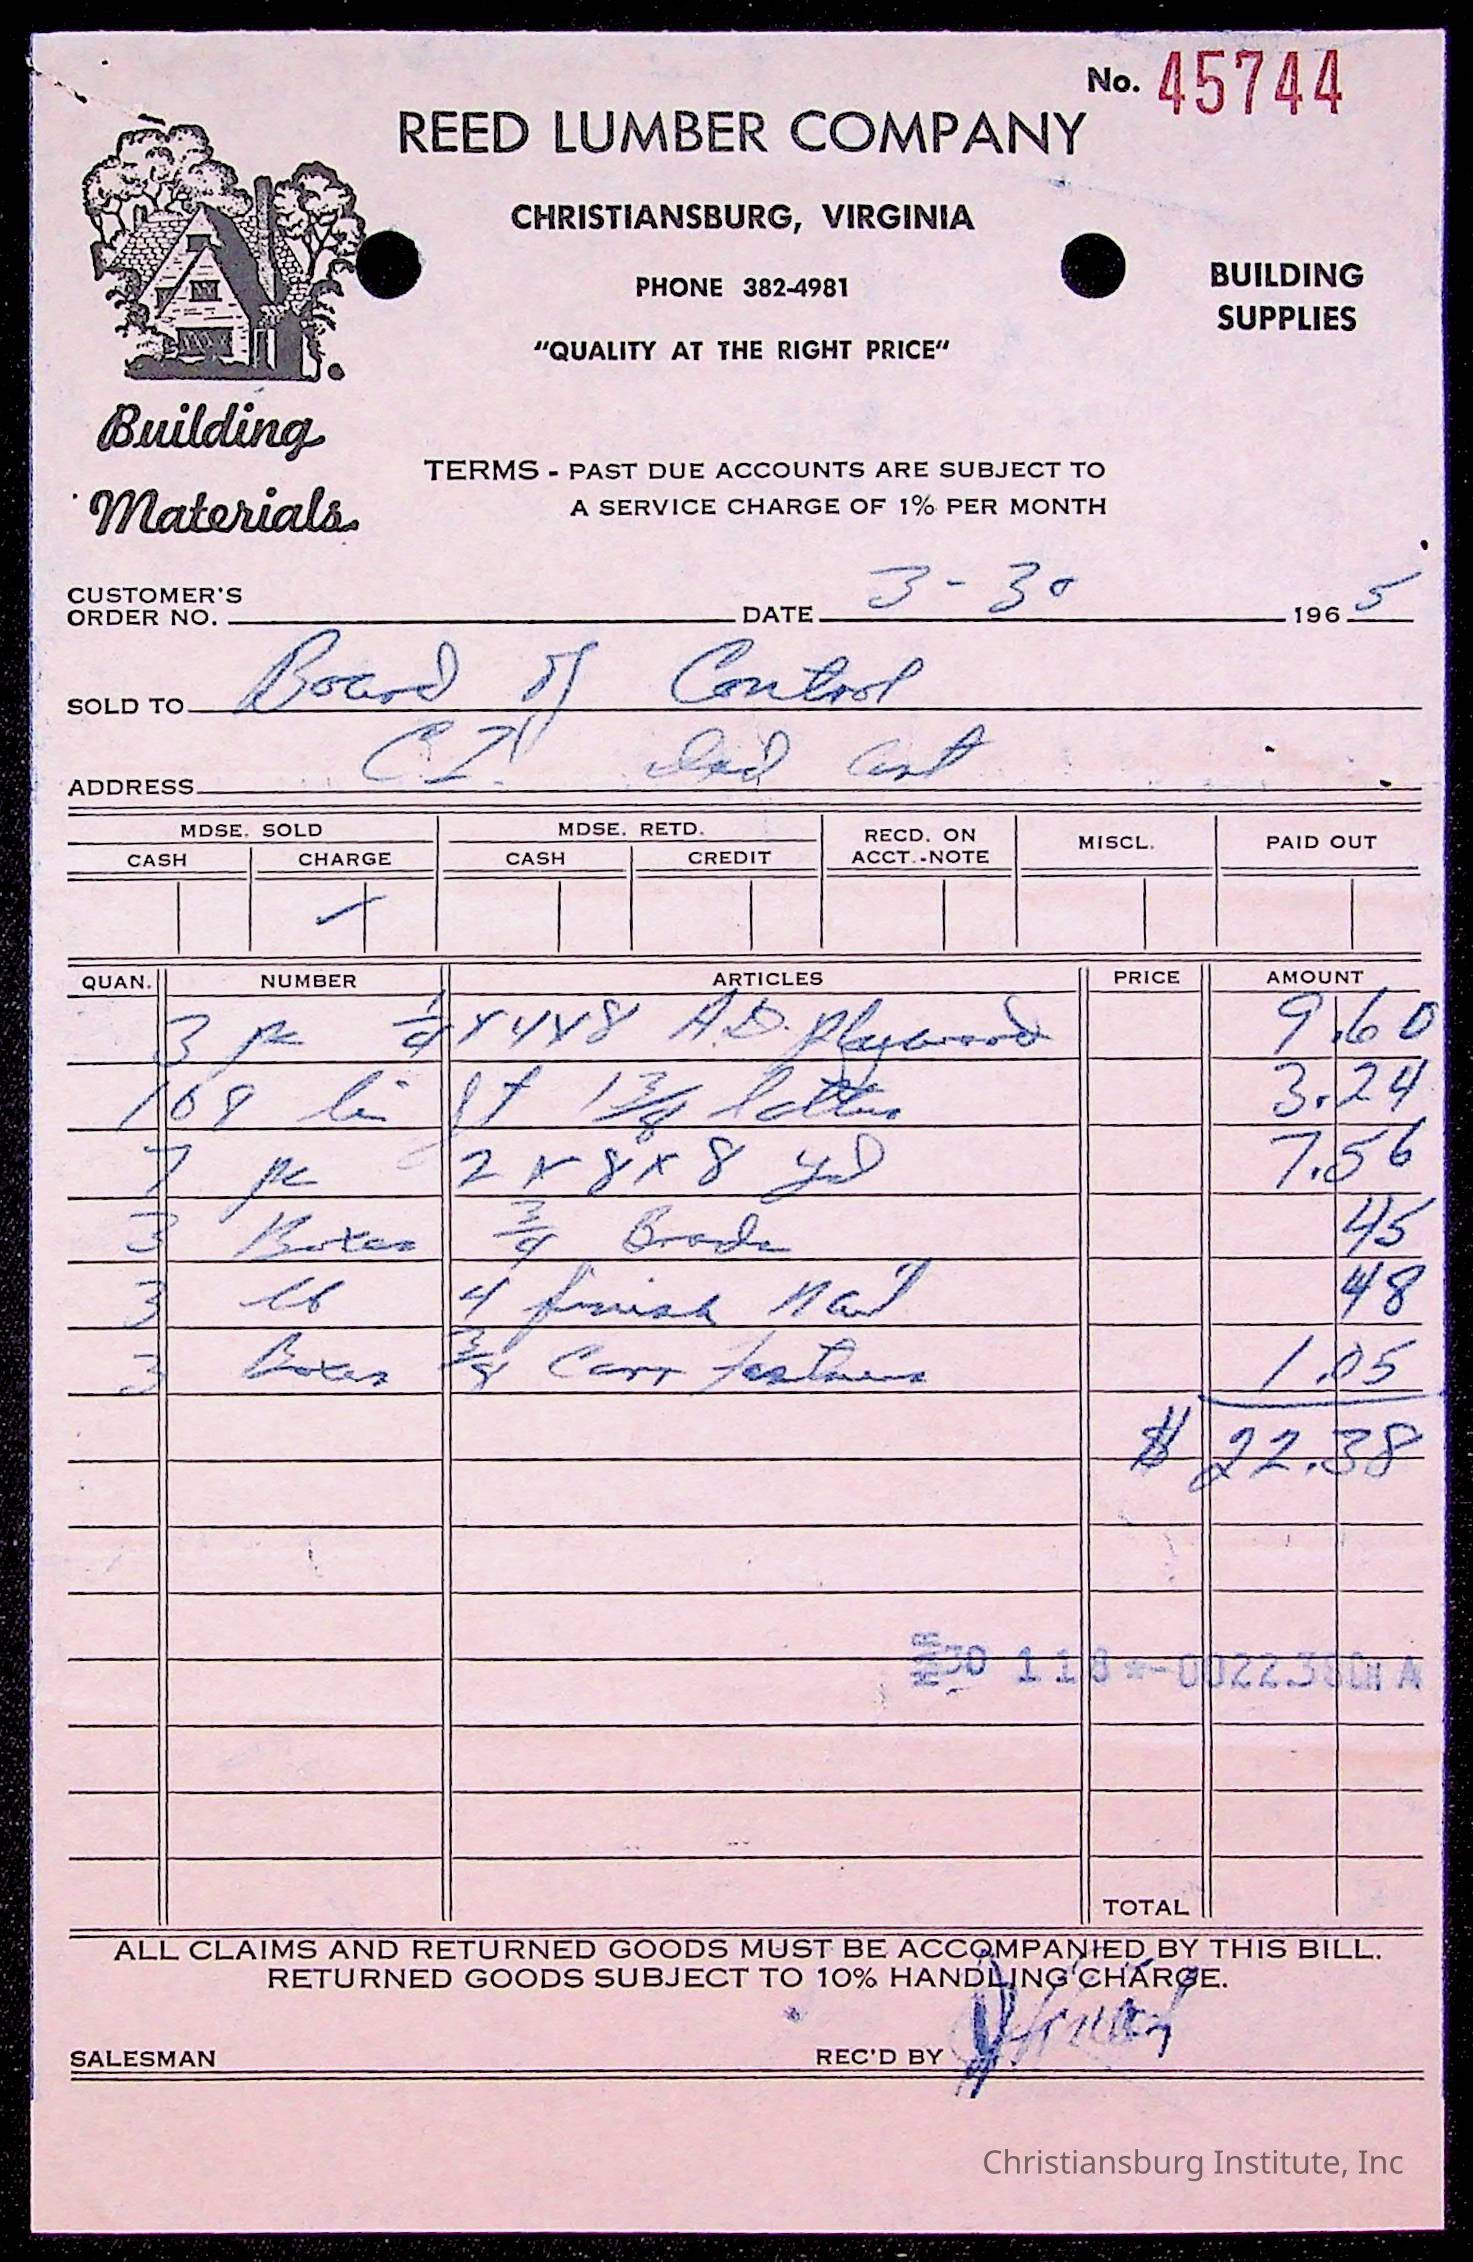 No. 45744
REED LUMBER COMPANY
CHRISTIANSBURG, VIRGINIA
PHONE 382-4981
"QUALITY AT THE RIGHT PRICE"
BUILDING
SUPPLIES
Building
Materials
TERMS - PAST DUE ACCOUNTS ARE SUBJECT TO
A SERVICE CHARGE OF 1% PER MONTH
CUSTOMER'S
ORDER NO. DATE 3-30 1965
SOLD TO Board of Control
ADDRESS C I Ind art
MDSE. SOLD MDSE. RETD. RECD. ON ACCT.-NOTE MISCL. PAID OUT
CASH CHARGE CASH CREDIT
QUAN. NUMBER ARTICLES PRICE AMOUNT
3 pc 1/4 x 4 x 8 A.D. plywood 9.60
lin ft 1 3/4 3.24
7 pc 2 x 8 x 8 7.56
3 Boxes 3/4 Brads 45
3 lb 4 finish Nail 48
3 Boxes 3/8 Corr fastners 1.05
$ 22.38
MAR 30 118 *-0022.38CH A
TOTAL
ALL CLAIMS AND RETURNED GOODS MUST BE ACCOMPANIED BY THIS BILL.
RETURNED GOODS SUBJECT TO 10% HANDLING CHARGE.
SALESMAN REC'D BY
Christiansburg Institute, Inc